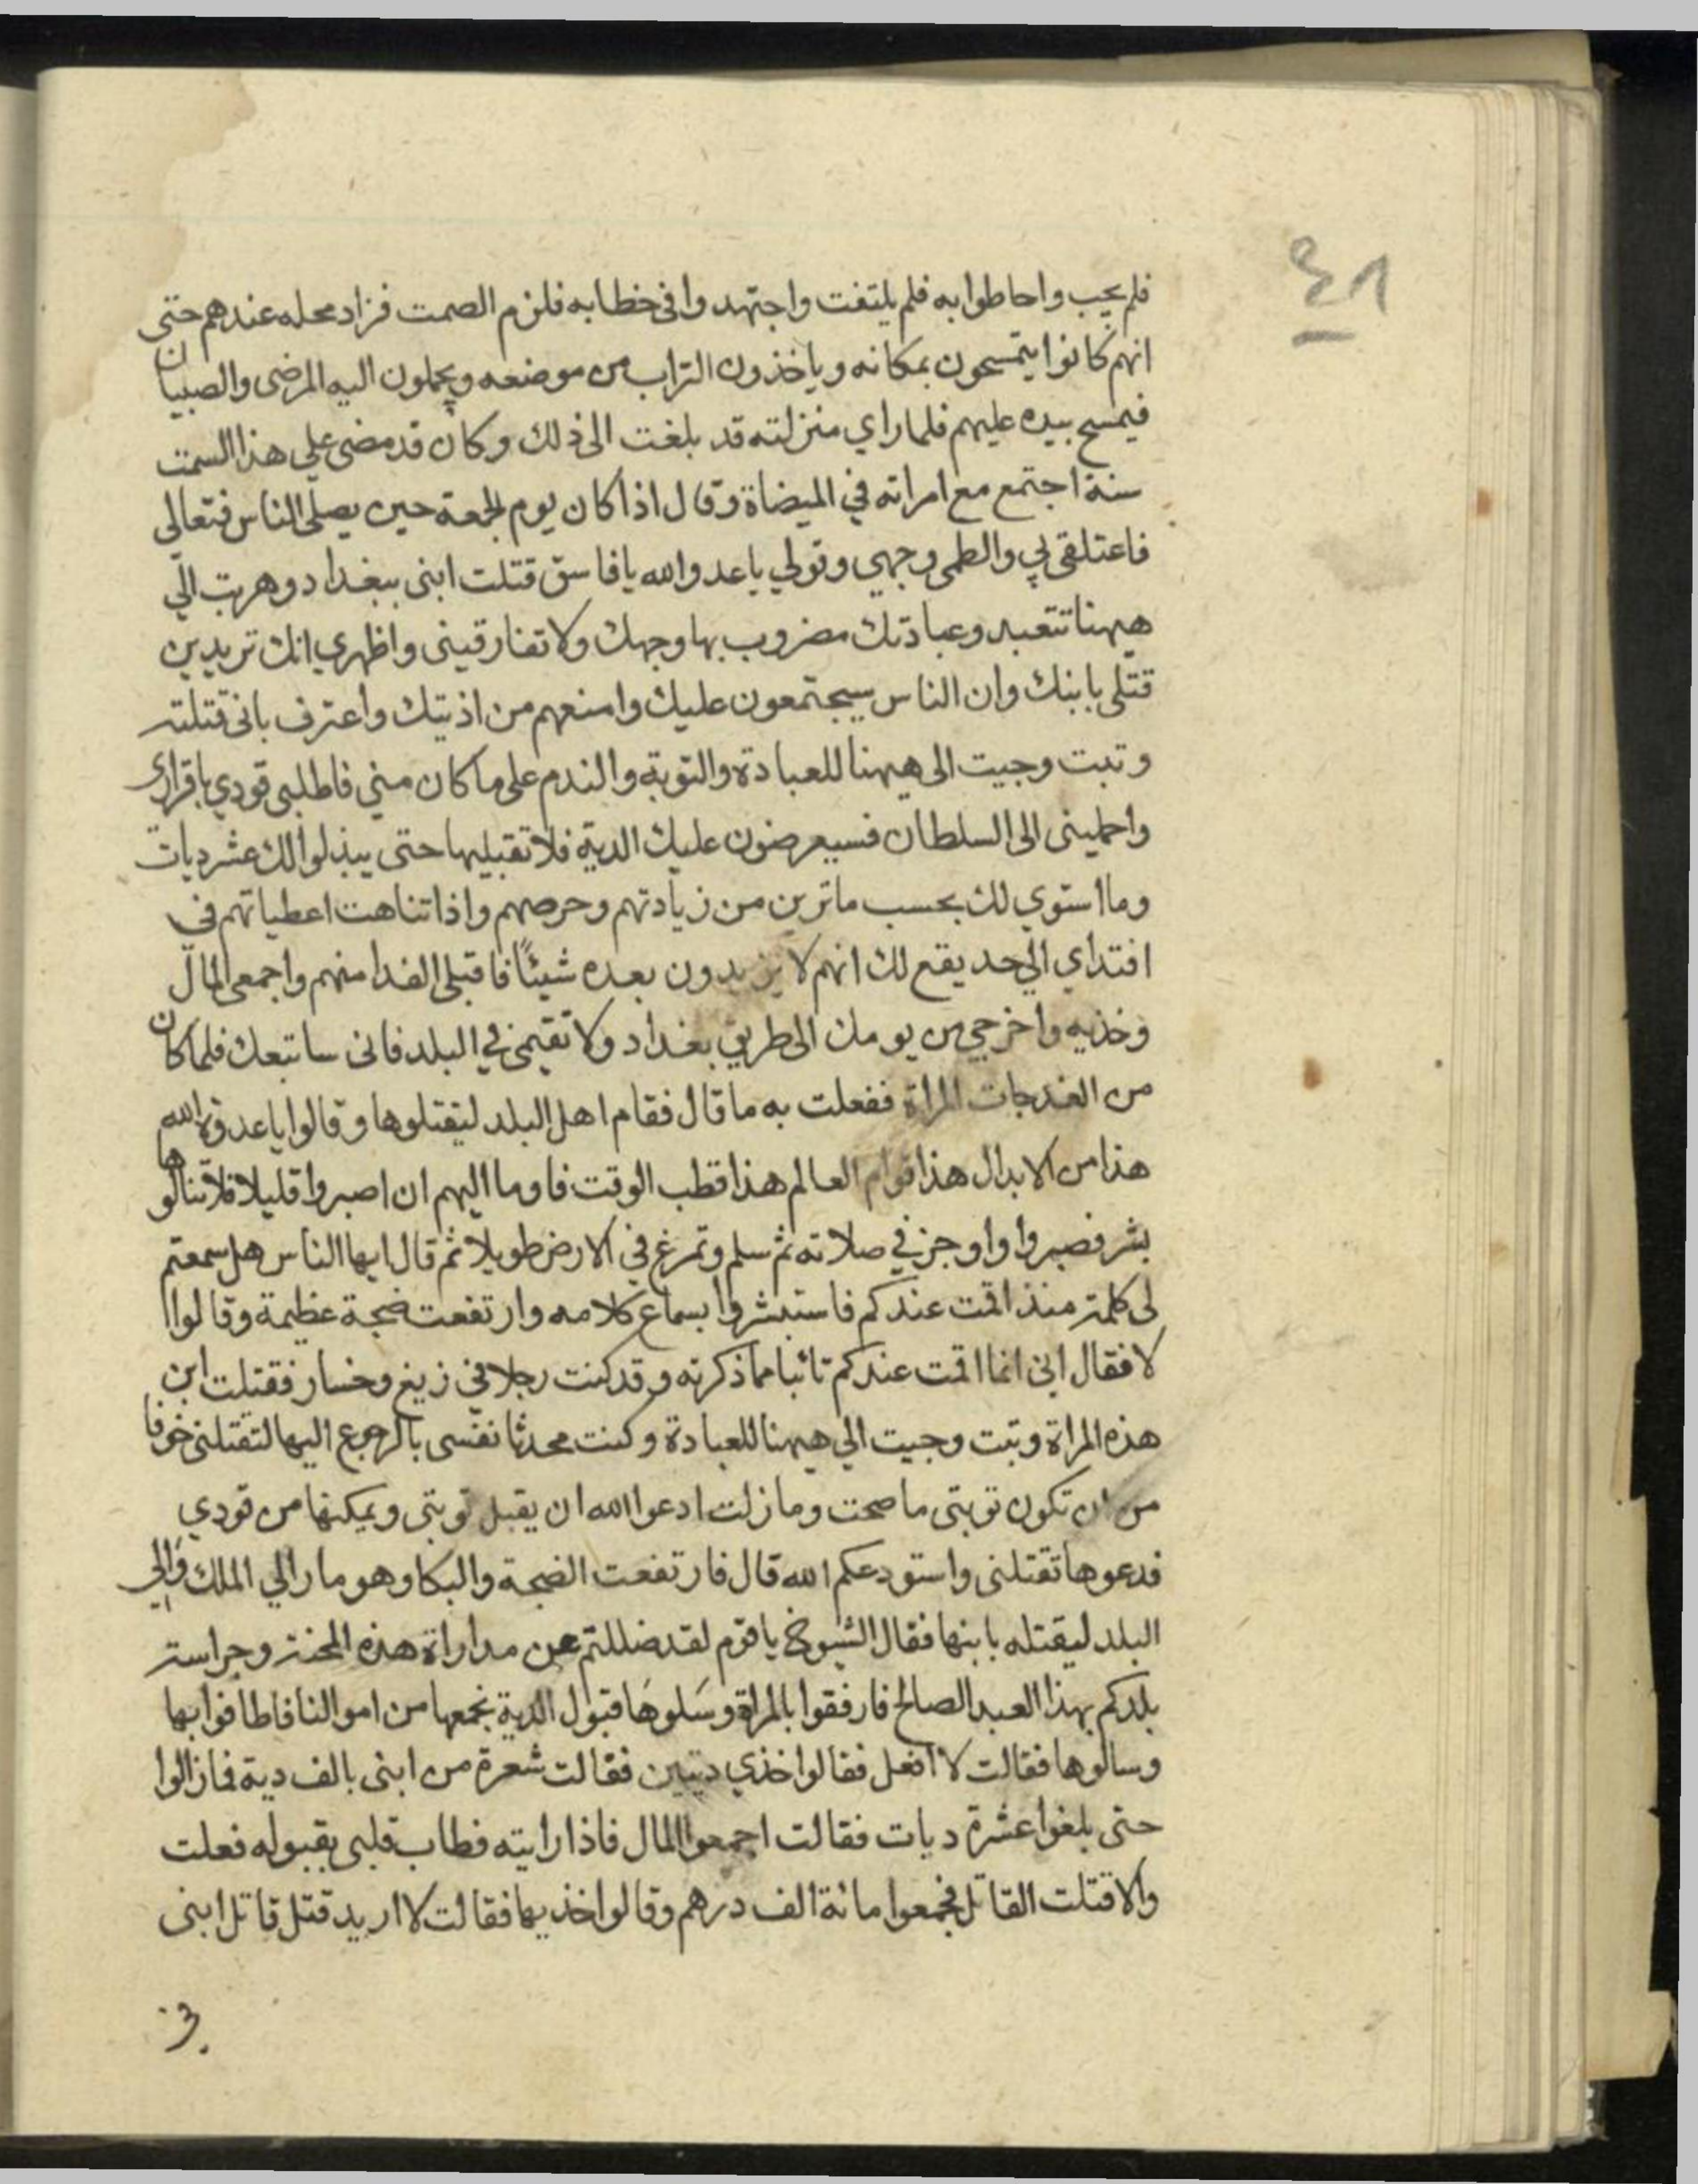 ٤٨
فلم يجب واحاطوا به فلم يلتفت واجتهدوا في خطابه فلزم الصمت فزاد محله عندهم حتى
انهم كانوا يتمسحون بمكانه وياخذون التراب من موضعه ويحملون اليه المرضى والصبيان
فيمسح بيده عليهم فلما راي منزلته قد بلغت الى ذلك وكان قد مضى علي هذا السمت
سنة اجتمع مع امراته في الميضاة وقال اذا كان يوم الجمعة حين يصلى الناس فتعالى
فاعتلقى بي والطمى وجهي وقولي يا عدو الله يا فاسق قتلت ابنى ببغداد وهربت الي
ههنا تتعبد وعبادتك مضروب بها وجهك ولا تفارقينى واظهري انك تريدين
قتلى بابنك وان الناس سيجتمعون عليك وامنعهم من اذيتك واعترف باني قتلته
وتبت وجيت الى ههنا للعبادة والتوبة والندم على ما كان مني فاطلبى قودي باقراري
واحملينى الى السلطان فسيعرضون عليك الدية فلا تقبليها حتى يبذلوا لك عشر ديات
وما استوي لك بحسب ما ترين من زيادتهم وحرصهم واذا تناهت اعطياتهم في
افتداي الي حد يقع لك انهم لا يزيدون بعده شيئًا فاقبلى الفدا منهم واجمعى المال
وخذيه واخرجي من يومك الى طريق بغداد ولا تقيمى في البلد فانى ساتبعك فلما كان
من الغد جات المراة ففعلت به ما قال فقام اهل البلد ليقتلوها وقالوا يا عدوة الله
هذا من الابدال هذا قوام العالم هذا قطب الوقت فاوما اليهم ان اصبروا قليلا فلا تنالوها
بشر فصبروا واوجز في صلاته ثم سلم وتمرغ في الارض طويلا ثم قال ايها الناس هل سمعتم
لى كلمة منذ اقمت عندكم فاستبشروا بسماع كلامه وارتفعت ضجة عظيمة وقالوا
لا فقال انى انما اقمت عندكم تائبا مما ذكرته وقد كنت رجلا في زيغ وخسار فقتلت ابن
هذه المراة وتبت وجيت الي ههنا للعبادة وكنت محدثا نفسى بالرجوع اليها لتقتلنى خوفا
من ان تكون توبتى ما صحت وما زلت ادعوا الله ان يقبل توبتى ويمكنها من قودي
فدعوها تقتلنى واستودعكم الله قال فارتفعت الضجة والبكا وهو مار الي الملك والي
البلد ليقتله بابنها فقال الشيوخ يا قوم لقد ضللتم عن مداراة هذه المحنة وحراسة
بلدكم بهذا العبد الصالح فارفقوا بالمراة وسَلوهَا قبول الدية نجمعها من اموالنا فاطافوا بها
وسالوها فقالت لا افعل فقالوا خذي ديتين فقالت شعرة من ابنى بالف دية فما زالوا
حتى بلغوا عشرة ديات فقالت اجمعوا المال فاذا رايته فطاب قلبى بقبوله فعلت
والا قتلت القاتل فجمعوا مائة الف درهم وقالوا خذيها فقالت لا اريد قتل قاتل ابنى